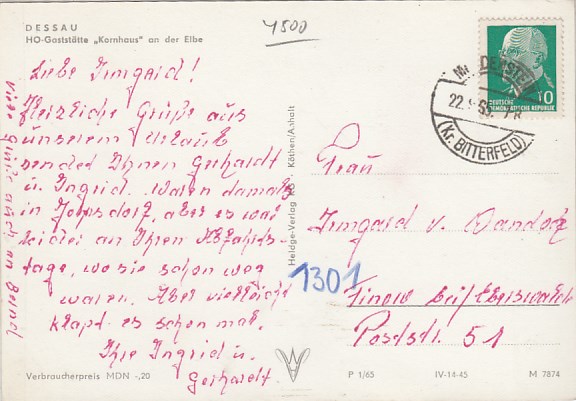 DESSAU
HO-Gaststätte „Kornhaus" an der Elbe
4500
Liebe Irmgard!
Herzliche Grüße aus
unserem Urlaub
sendet Ihnen Gerhardt
u. Ingrid. Waren damals
in Jonsdorf, aber es war
leider an Ihren Abfahrts-
tage, wo sie schon weg
waren. Aber vielleicht
klapt es schon mal.
Ihre Ingrid u.
Gerhardt.
Viele Grüße auch an
Verbraucherpreis MDN -,20
Heldge-Verlag KG Köthen/Anhalt
DEUTSCHE
DEMOKRATISCHE REPUBLIK
10
22.
(Kr. BITTERFELD)
Frau
Irmgard v.
1301
Finow bei Eberswalde
Poststr. 51
P 1/65 IV-14-45 M 7874